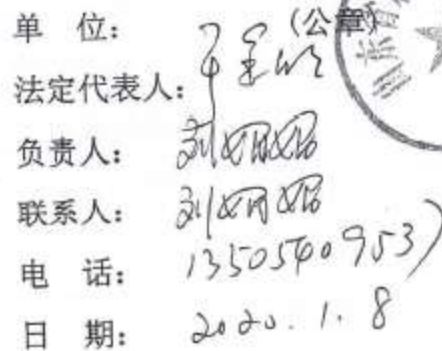 单 位: (公章)
法定代表人:
负责人: 刘娟娟
联系人: 刘娟娟
电 话: 13505409537
日 期: 2020.1.8